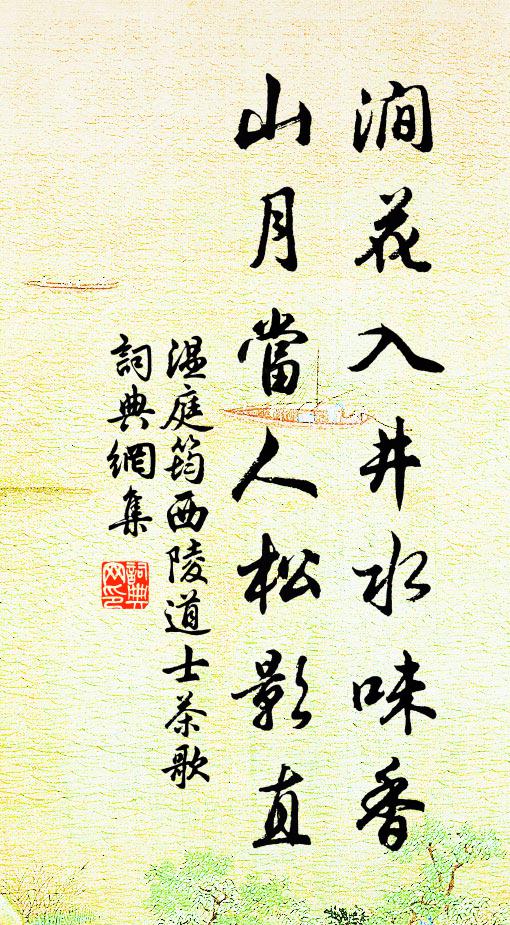 澗花入井水味香
山月當人松影直
温庭筠西陵道士茶歌
詞典網集
詞典網印